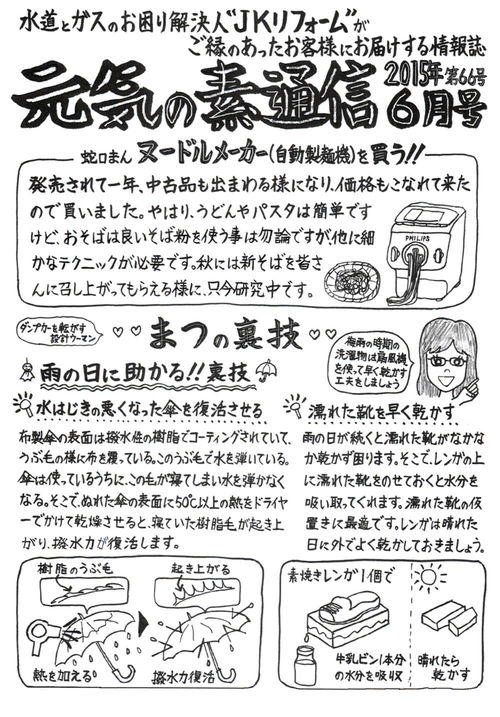 水道とガスのお困り解決人"JKリフォーム"が
ご縁のあったお客様にお届けする情報誌
元気の素通信
2015年 第66号
6月号
蛇口まん ヌードルメーカー(自動製麺機)を買う!!
発売されて一年、中古品も出まわる様になり、価格もこなれて来た
ので買いました。やはり、うどんやパスタは簡単です
けど、おそばは良いそば粉を使う事は勿論ですが、他に細
かなテクニックが必要です。秋には新そばを皆さ
んに召し上がってもらえる様に、只今研究中です。
PHILIPS
ダンプカーを転がす
設計ウーマン
♡♡ まつの裏技 ♡♡
梅雨の時期の
洗濯物は扇風機
を使って早く乾かす
工夫をしましょう
雨の日に助かる!!裏技
水はじきの悪くなった傘を復活させる
布製傘の表面は撥水性の樹脂でコーティングされていて、
うぶ毛の様に布を覆っている。このうぶ毛で水を弾いている。
傘は使っているうちに、この毛が寝てしまい水を弾かなく
なる。そこで、ぬれた傘の表面に50℃以上の熱をドライヤ
ーでかけて乾燥させると、寝ていた樹脂毛が起き上
がり、撥水力が復活します。
濡れた靴を早く乾かす
雨の日が続くと濡れた靴がなかな
か乾かず困ります。そこで、レンガの上
に濡れた靴をのせておくと水分を
吸い取ってくれます。濡れた靴の仮
置きに最適です。レンガは晴れた
日に外でよく乾かしておきましょう。
樹脂のうぶ毛
起き上がる
熱を加える
撥水力復活
素焼きレンガ1個で
牛乳ビン1本分
の水分を吸収
晴れたら
乾かす